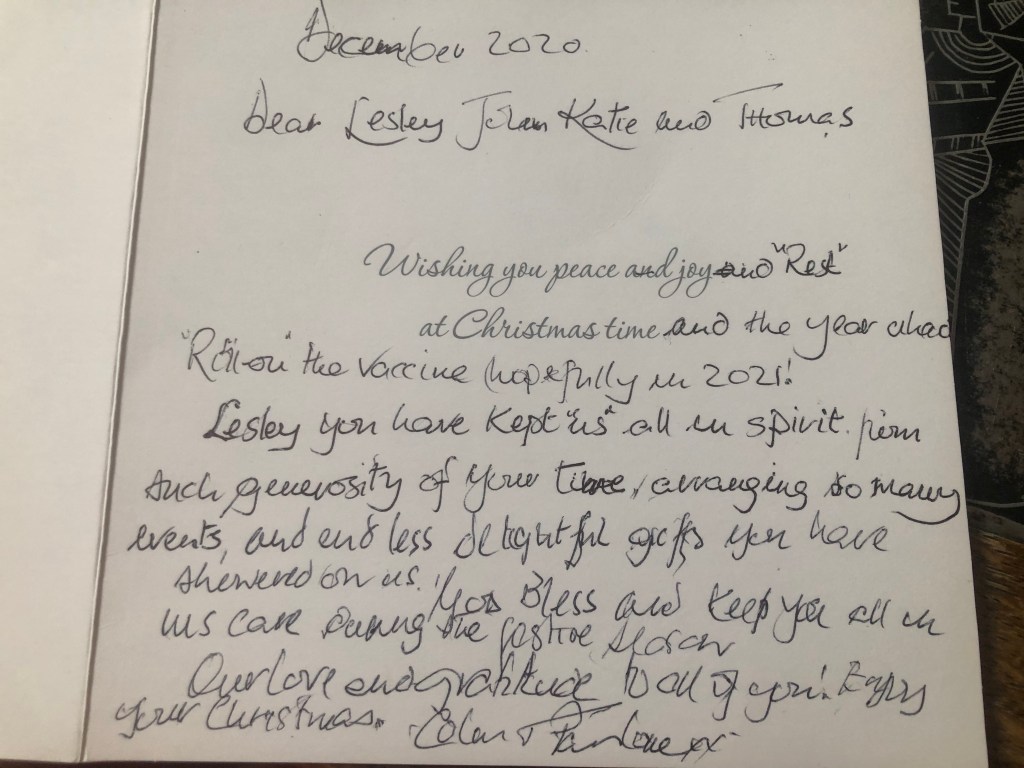 December 2020.
Dear Lesley John Katie and Thomas
Wishing you peace and joy and "Rest"
at Christmas time and the year ahead
"Roll-on" the vaccine hopefully in 2021!
Lesley you have Kept "us" all in spirit. from
such generosity of your time, arranging so many
events, and endless delightful gifts you have
showered on us!
God Bless and keep you all in
His care during the festive season
Our love and gratitude to all of you. Enjoy
your Christmas. Colin + xx